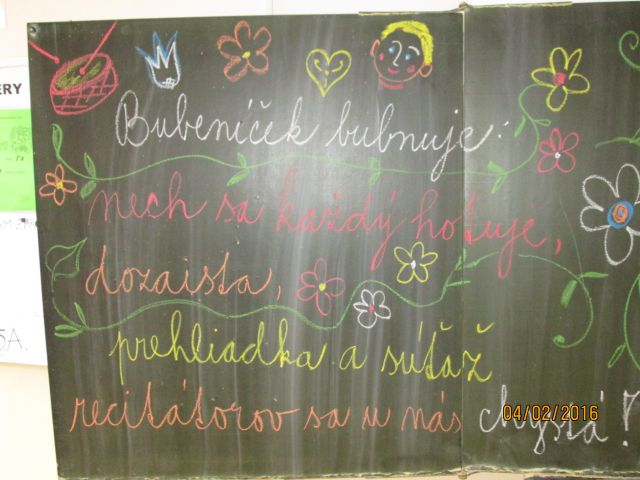 Bubeníček bubnuje:
nech sa každý hotuje,
dozaista,
prehliadka a súťaž
recitátorov sa u nás chystá!
04/02/2016
ÉRY
5A.